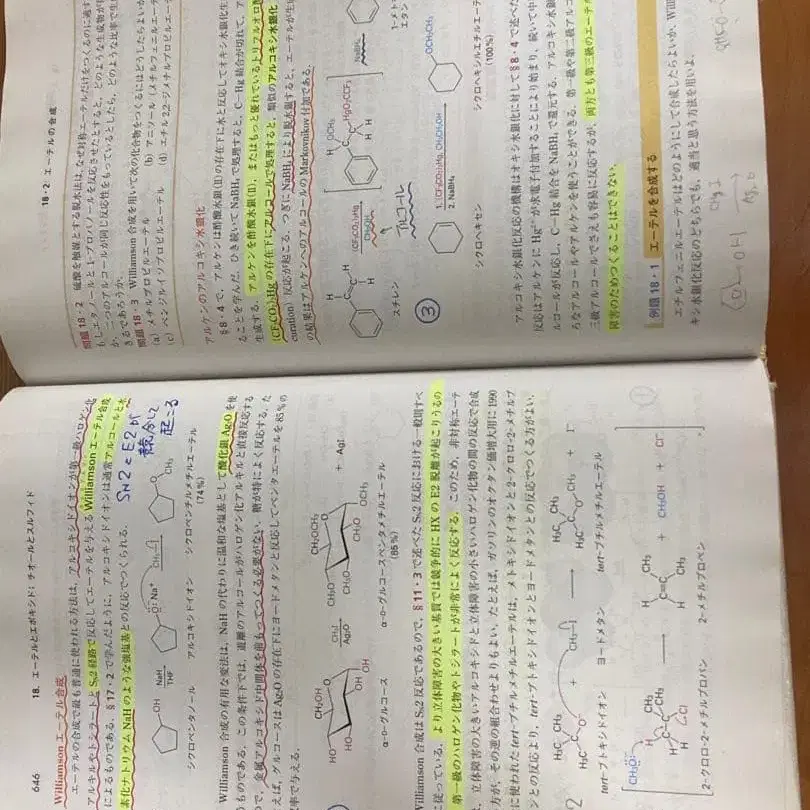 646
18. エーテルとエポキシド；チオールとスルフィド
Williamson エーテル合成
エーテルの合成で最も普通に使われる方法は，アルコキシドイオンが第一級ハロゲン化
アルキルやトシラートと SN2 経路で反応してエーテルを与える Williamson エーテル合成
によるものである．§17・2 で学んだように，アルコキシドイオンは通常アルコールと水
素化ナトリウム NaH のような強塩基との反応でつくられる．
SN2 と E2 が
競合して
起こる
OH
NaH
THF
O:⁻ Na⁺
CH₃—I
O
CH₃
シクロペンタノール
アルコキシドイオン
シクロペンチルメチルエーテル
(74%)
Williamson 合成の有用な変法は，NaH の代わりに温和な塩基として酸化銀 Ag₂O を使
ものである．この条件下では，遊離のアルコールがハロゲン化アルキルと直接反応する
で，金属アルコキシド中間体を前もってつくる必要がない．糖が特によく反応する．た
えば，グルコースは Ag₂O の存在下にヨードメタンと反応してペンタエーテルを 85% の
率で与える．
CH₂OH
HO
HO
OH
OH
CH₃I
Ag₂O
CH₂OCH₃
CH₃O
CH₃O
CH₃O
OCH₃
+ AgI
α-D-グルコース
α-D-グルコースペンタメチルエーテル
(85%)
Williamson 合成は SN2 反応であるので，§11・3 で述べた SN2 反応における一般則すべ
に従っている．より立体障害の大きい基質では競争的に HX の E2 脱離が起こりうるの
第一級のハロゲン化物やトシラートが非常によく反応する．このため，非対称エーテ
，立体障害の大きいアルコキシドと立体障害の小さいハロゲン化物の間の反応で合成
方が，その逆の組合わせよりもよい．たとえば，ガソリンのオクタン価増大用に 1990
に使われた tert-ブチルメチルエーテルは，メトキシドイオンと 2-クロロ-2-メチルプ
ンとの反応より，tert-ブトキシドイオンとヨードメタンとの反応でつくる方がよい．
tert-ブトキシドイオン
ヨードメタン
tert-ブチルメチルエーテル
CH₃Ö:⁻
+ CH₃OH + Cl⁻
2-クロロ-2-メチルプロパン
2-メチルプロペン
18・2 エーテルの合成
問題 18・2 硫酸を触媒とする脱水法は，なぜ対称エーテルだけをつくるのに適す
もしエタノールと 1-プロパノールを反応させたとすると，どのような生成物が
か．二つのアルコールが同じ反応性をもっているとしたら，どのような比率で生
きるであろうか．
問題 18・3 Williamson 合成を用いて次の化合物をつくるにはどうしたらよいか
(a) メチルプロピルエーテル
(b) アニソール（メチルフェニルエーテ
(c) ベンジルイソプロピルエーテル
(d) エチル 2,2-ジメチルプロピルエーテ
アルケンのアルコキシ水銀化
§8・4 で，アルケンは酢酸水銀(II) の存在下に水と反応してオキシ水銀化生
ることを学んだ．ひき続いて NaBH₄ で処理すると，C−Hg 結合が切れて，ア
生成する．アルケンを酢酸水銀(II)，またはもっと優れているトリフルオロ酢
(CF₃CO₂)₂Hg の存在下にアルコールで処理すると，類似のアルコキシ水銀化
curation）反応が起こる．つぎに NaBH₄ により脱水銀すると，エーテルが生
の結果はアルケンへのアルコールの Markovnikov 付加である．
(CF₃CO₂)₂Hg
CH₃OH
アルコール
H OCH₃
HgO₂CCF₃
H H
NaBH₄
スチレン
1-メト
エタン
③
1. (CF₃CO₂)₂Hg, CH₃CH₂OH
2. NaBH₄
OCH₂CH₃
シクロヘキセン
シクロヘキシルエチルエーテ
(100%)
アルコキシ水銀化反応の機構はオキシ水銀化に対して §8・4 で述べた
反応はアルケンに Hg²⁺ が求電子付加することにより始まり，続いて中
ルコールが反応し，C−Hg 結合を NaBH₄ で還元する．アルコキシ水銀
ろなアルコールやアルケンを使うことができる．第一級や第二級アルコ
三級アルコールでさえも容易に反応するが，両方とも第三級のエーテ
障害のためつくることはできない．
例題 18・1 エーテルを合成する
エチルフェニルエーテルはどのようにして合成したらよいか．Will
キシ水銀化反応のどちらでも，適当と思う方法を用いよ．